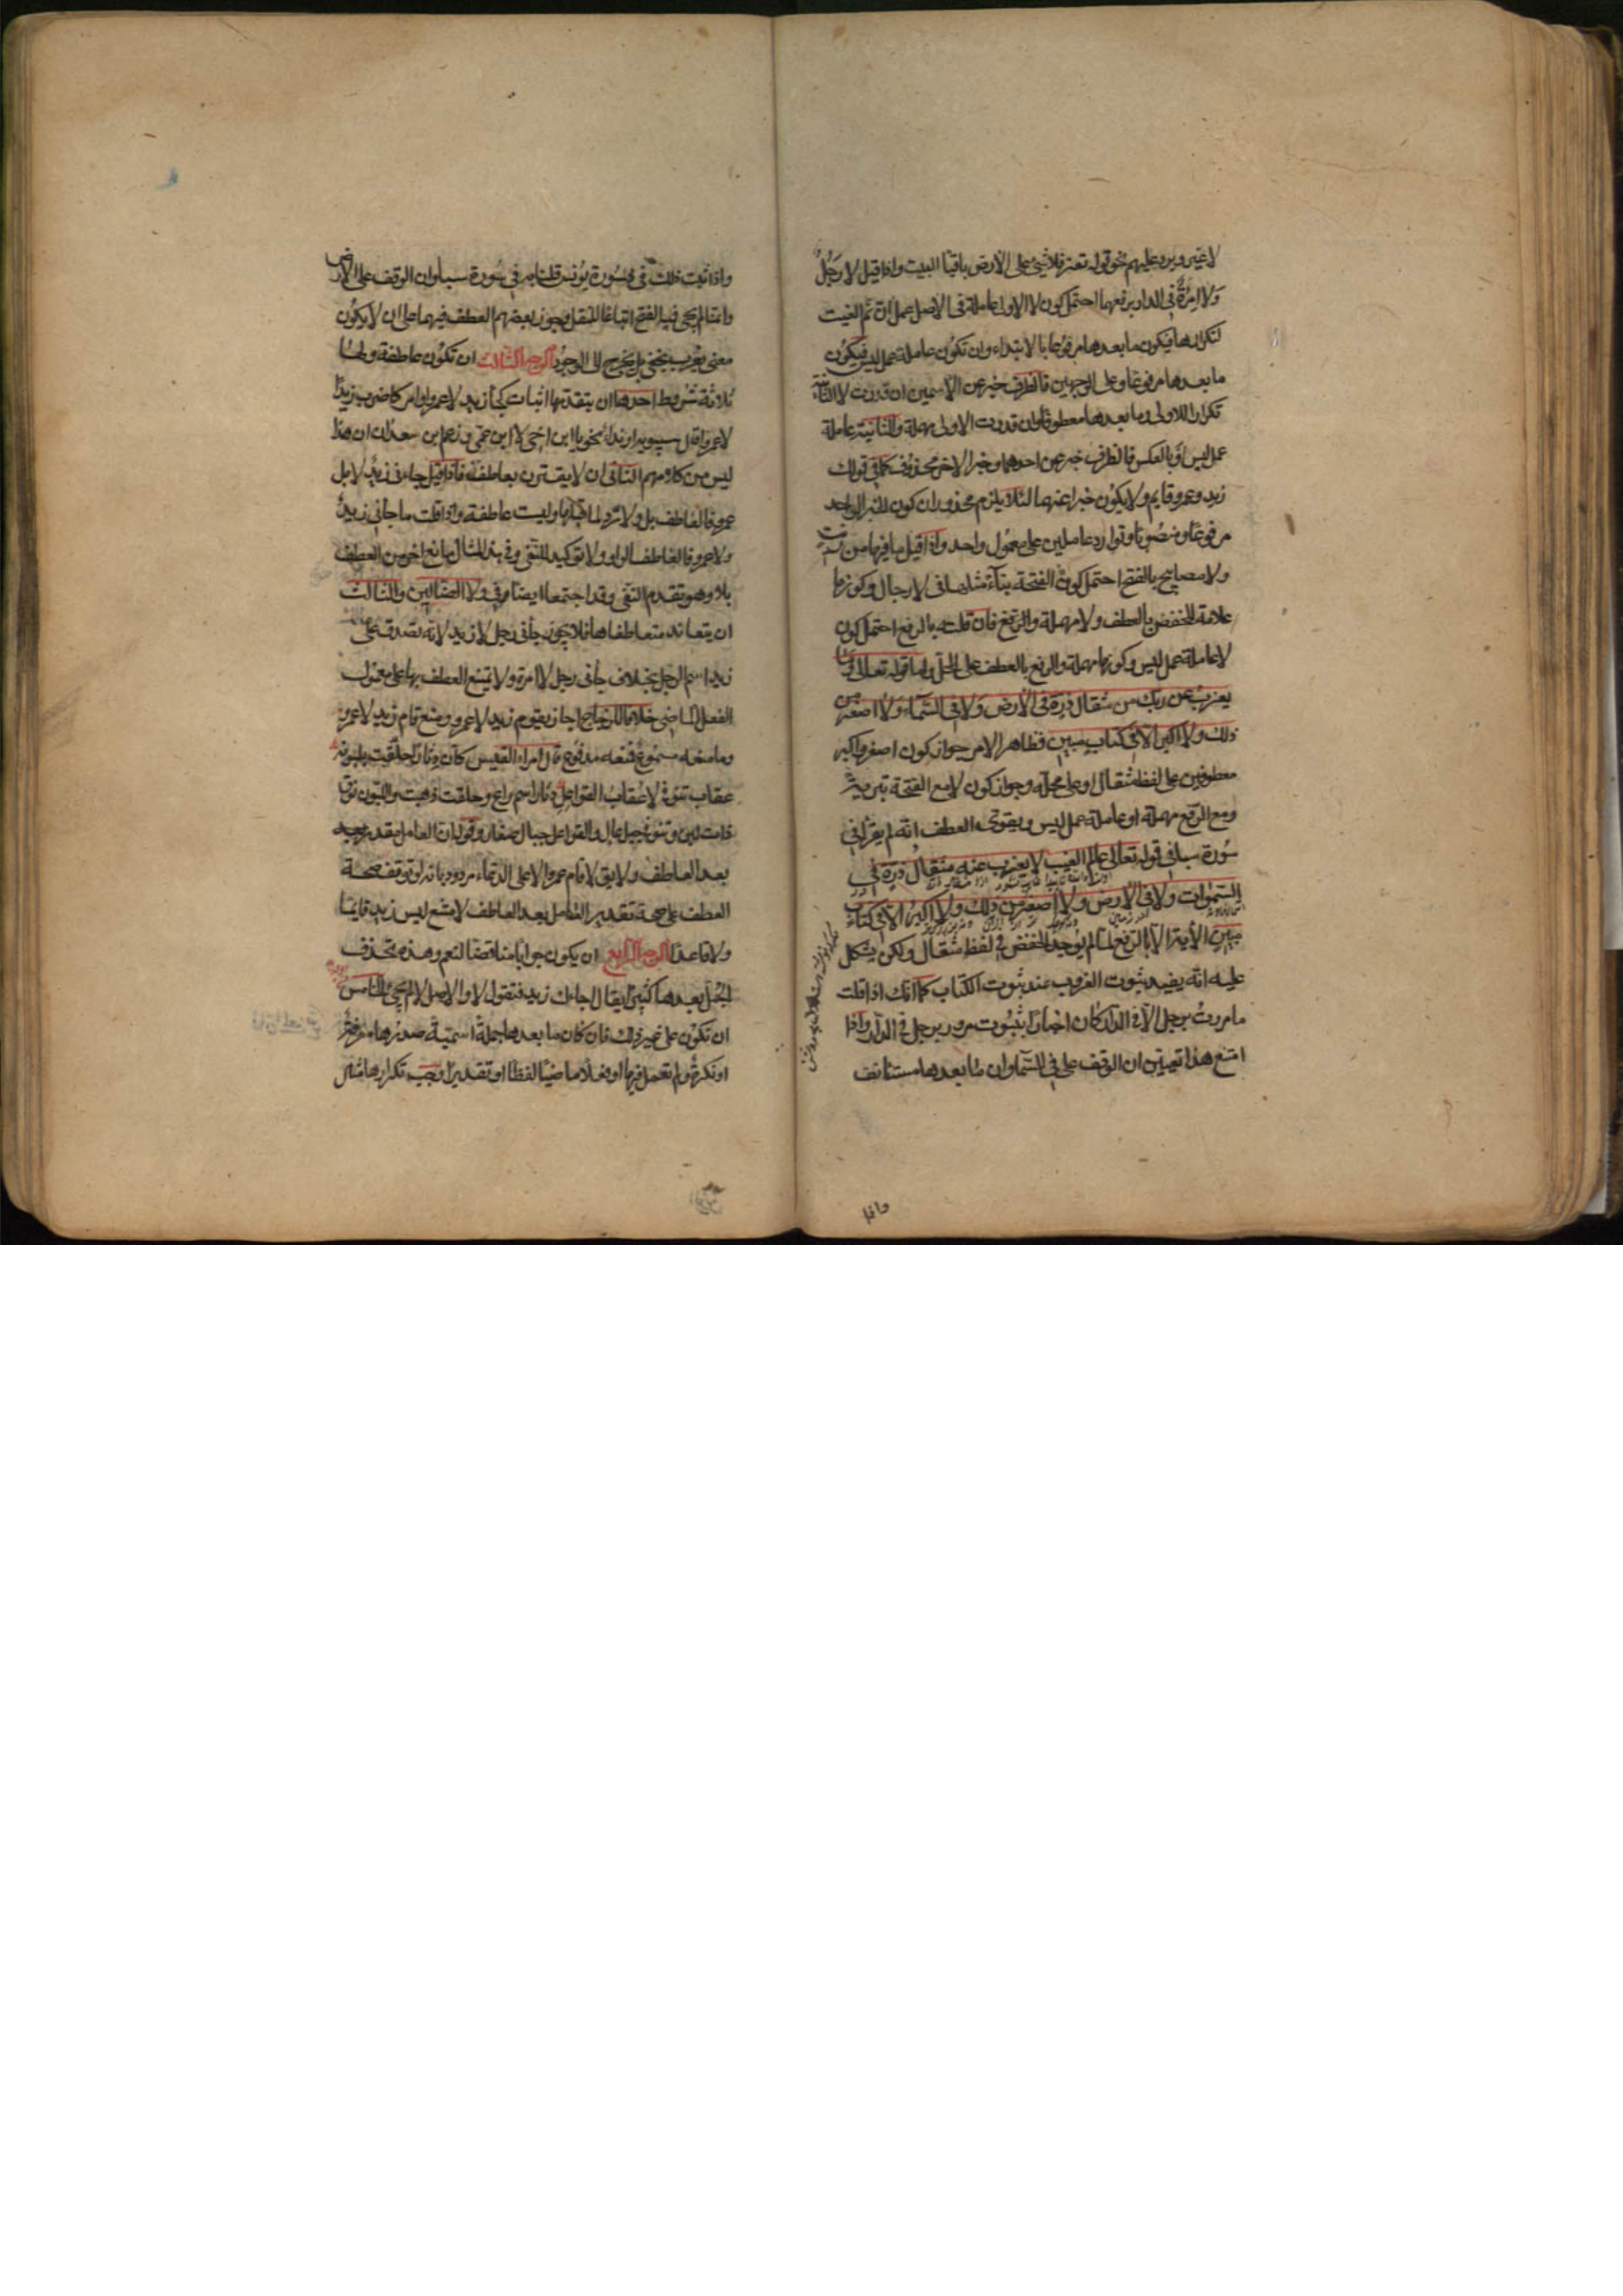 لا غير ويرد عليهم نحو قوله تعز فلا شئ على الارض باقيا البيت واذا قيل لا رجلٌ
ولا امرأةٌ في الدار برفعهما احتمل كون لا الاولى عاملة في الاصل عمل ان ثم الغيت
لتكرارها فيكون ما بعدها مرفوعا بالابتداء وان تكون عاملة عمل ليس فيكون
ما بعدها مرفوعا وعلى الوجهين فالظرف خبر عن الاسمين ان قدرت لا الثانية
تكرارا للاولى وما بعدها معطوفا وان قدرت الاولى مهملة والثانية عاملة
عمل ليس او بالعكس فالظرف خبر عن احدهما وخبر الاخر محذوف كما في قولك
زيد وعمرو قايم ولا يكون خبرا عنهما لئلا يلزم محذوران كون الخبر الواحد
مرفوعا ومنصوبا وتوارد عاملين على معمول واحد واذا قيل ما فيها من زيت
ولا مصابيح بالفتح احتمل كون الفتحة بناء مثلها في لا رجال وكونها
علامة للخفض بالعطف ولا مهملة والرفع فان قلته بالرفع احتمل كون
لا عاملة عمل ليس وكونها مهملة والرفع بالعطف على المحل واما قوله تعالى وما
يعزب عن ربك من مثقال ذرة في الارض ولا في السماء ولا اصغر من
ذلك ولا اكبر الا في كتاب مبين فظاهر الامر جواز كون اصغر واكبر
معطوفين على لفظ مثقال او على محله وجواز كون لا مع الفتحة تبرية
ومع الرفع مهملة او عاملة عمل ليس ويقوى العطف انه لم يقرأ في
سورة سبا في قوله تعالى عالم الغيب لا يعزب عنه مثقال ذرة في
السموات ولا في الارض ولا اصغر من ذلك ولا اكبر الا في كتاب
مبين الأية الا بالرفع لما لم يوجد الخفض في لفظ مثقال ولكن يشكل
عليه انه يفيد ثبوت العزوب عند ثبوت الكتاب كما انك اذا قلت
ما مررت برجل الا في الدار كان اخبارا بثبوت مرورك برجل في الدار واذا
امتنع هذا تعين ان الوقف على في السماء وان ما بعدها مستانف
واذا
واذا ثبت ذلك في سورة يونس قلنا به في سورة سبا وان الوقف على الارض
وانما لم يجئ فيه الفتح اتباعا للنقل وجوز بعضهم العطف فيهما على ان لا يكون
معنى يعزب يخفى بل يخرج الى الوجود الوجه الثالث ان تكون عاطفة ولها
ثلاثة شروط احدها ان يتقدمها اثبات كجا زيد لا عمرو او امر كاضرب زيدا
لا عمرا قال سيبويه او نداء نحو يا ابن اخى لا ابن عمى وزعم ابن سعدان ان هذا
ليس من كلامهم الثانى ان لا يقترن بعاطف فاذا قيل جاءنى زيد لا بل
عمرو فالعاطف بل ولا ترد لما قبلها وليست عاطفة واذا قلت ما جاني زيد
ولا عمرو فالعاطف الواو ولا توكيد للنفى وفي هذا المثال مانع اخر من العطف
بلا وهو تقدم النفى وقد اجتمعا ايضا في ولا الضالين والثالث
ان يتعاند متعاطفاها فلا يجوز جأنى رجل لا زيد لانه يصدق على
زيد اسم الرجل بخلاف جأنى رجل لا امرأة ولا يمتنع العطف بها على معمول
الفعل الماضى خلافا للزجاج اجاز يقوم زيد لا عمرو ومنع قام زيد لا عمرو
وما منعه مسموع فمنعه مدفوع قال امراء القيس كأن دثارا حلقت بلبونه
عقاب تنوف لا عقاب القواعل دثار اسم راع وحلقت ذهبت واللبون نوق
ذات لبن وتنوف جبل عال والقواعل جبال صغار وقوله ان العامل يقدر
بعد العاطف ولا يق لا قام عمرو الا على الدعاء مردود بانه لو توقف صحة
العطف على صحة تقدير العامل بعد العاطف لامتنع ليس زيد قايما
ولا قاعدا الوجه الرابع ان يكون جوابا مناقضا لنعم وهذه تحذف
الجمل بعدها كثيرا يقال اجاءك زيد فتقول لا والاصل لا لم يجئ الخامس
ان تكون على غير ذلك فان كان ما بعدها جملة اسمية صدرها معرفة
او نكرة ولم تعمل فيها او فعلا ماضيا لفظا او تقديرا وجب تكرارها مثال